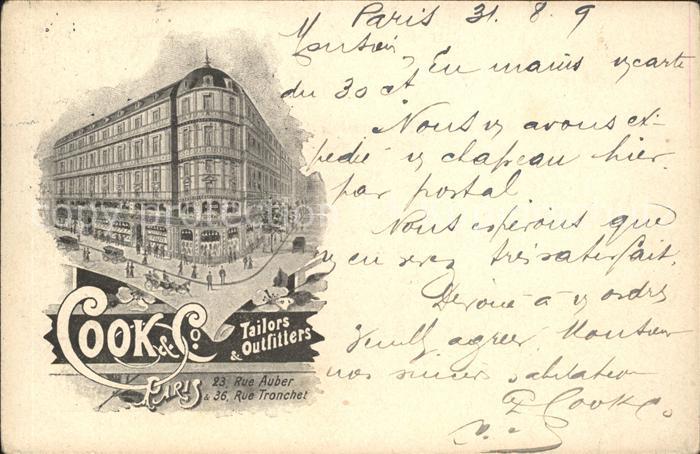 Paris 31. 8. 9
Monsieur
En mains v/carte
du 30 ct
Nous v/ avons ex-
pedié v/ chapeau hier
par postal
Nous espérons que
v/ en serez très satisfait.
Dévoué à v/ ordres
Veuillez agréer, Monsieur
nos sincères salutations
Cook & Co.
COOK & Co.
Tailors
& Outfitters
PARIS
23, Rue Auber
& 36, Rue Tronchet